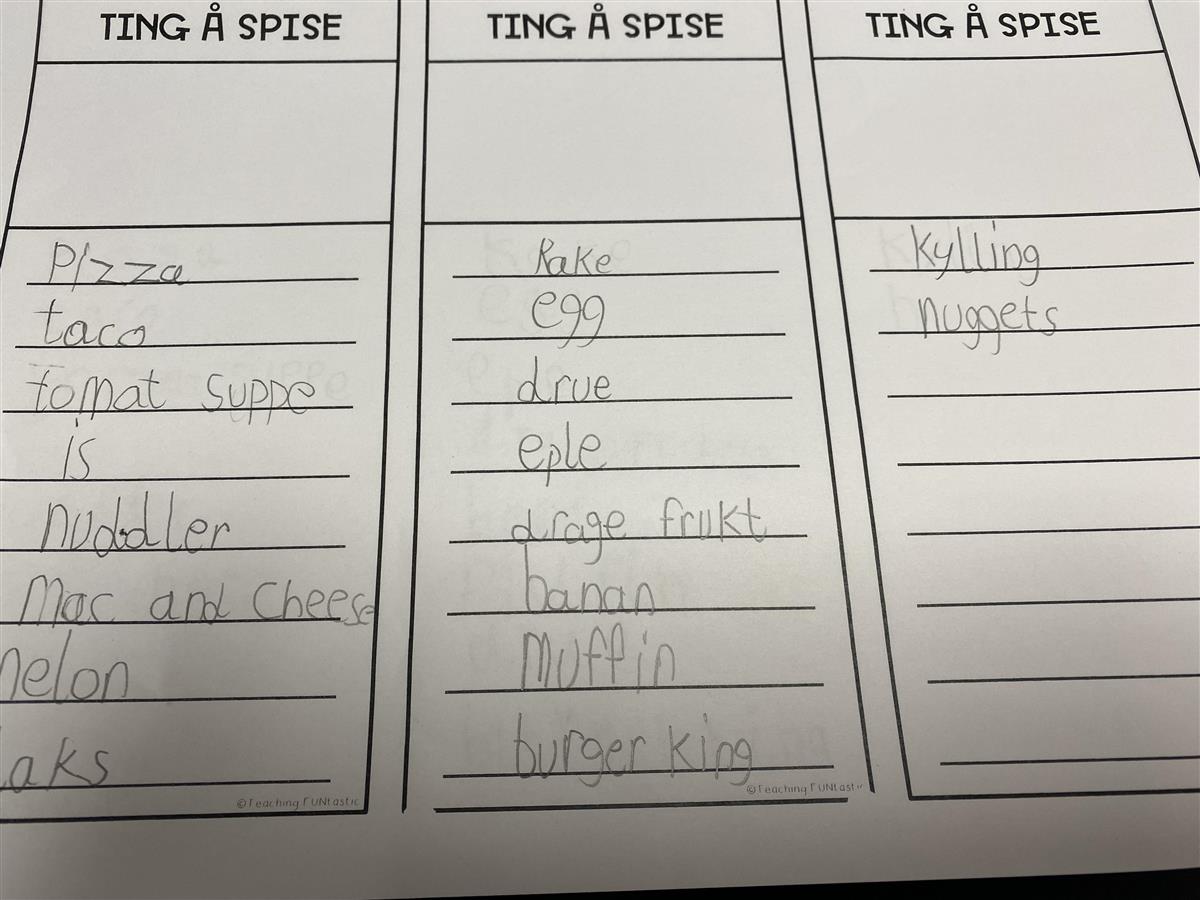 TING Å SPISE
Pizza
taco
tomat suppe
is
nuddler
Mac and Cheese
melon
Laks
©Teaching FUNtastic
TING Å SPISE
kake
egg
drue
eple
drage frukt
banan
Muffin
burger king
©Teaching FUNtastic
TING Å SPISE
Kylling
nuggets